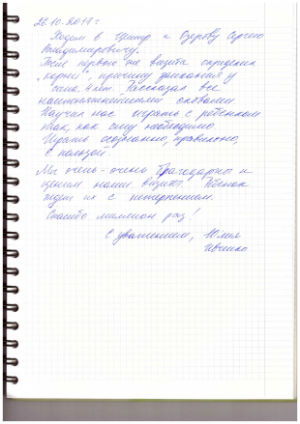 26.10.2017 г
Ходим в Центр к Озерову Сергею
Владимировичу.
После первого же визита определил
"корни", причину заикания у
сына 4 лет. Рассказал все
словами
Научил нас играть с ребенком
так, как ему необходимо
Играть осознанно, правильно,
с пользой.
Мы очень-очень благодарны и
ценим наши визиты. Ребенок
ждет их с нетерпением.
Спасибо миллион раз!
С уважением, Юлия
Ивченко